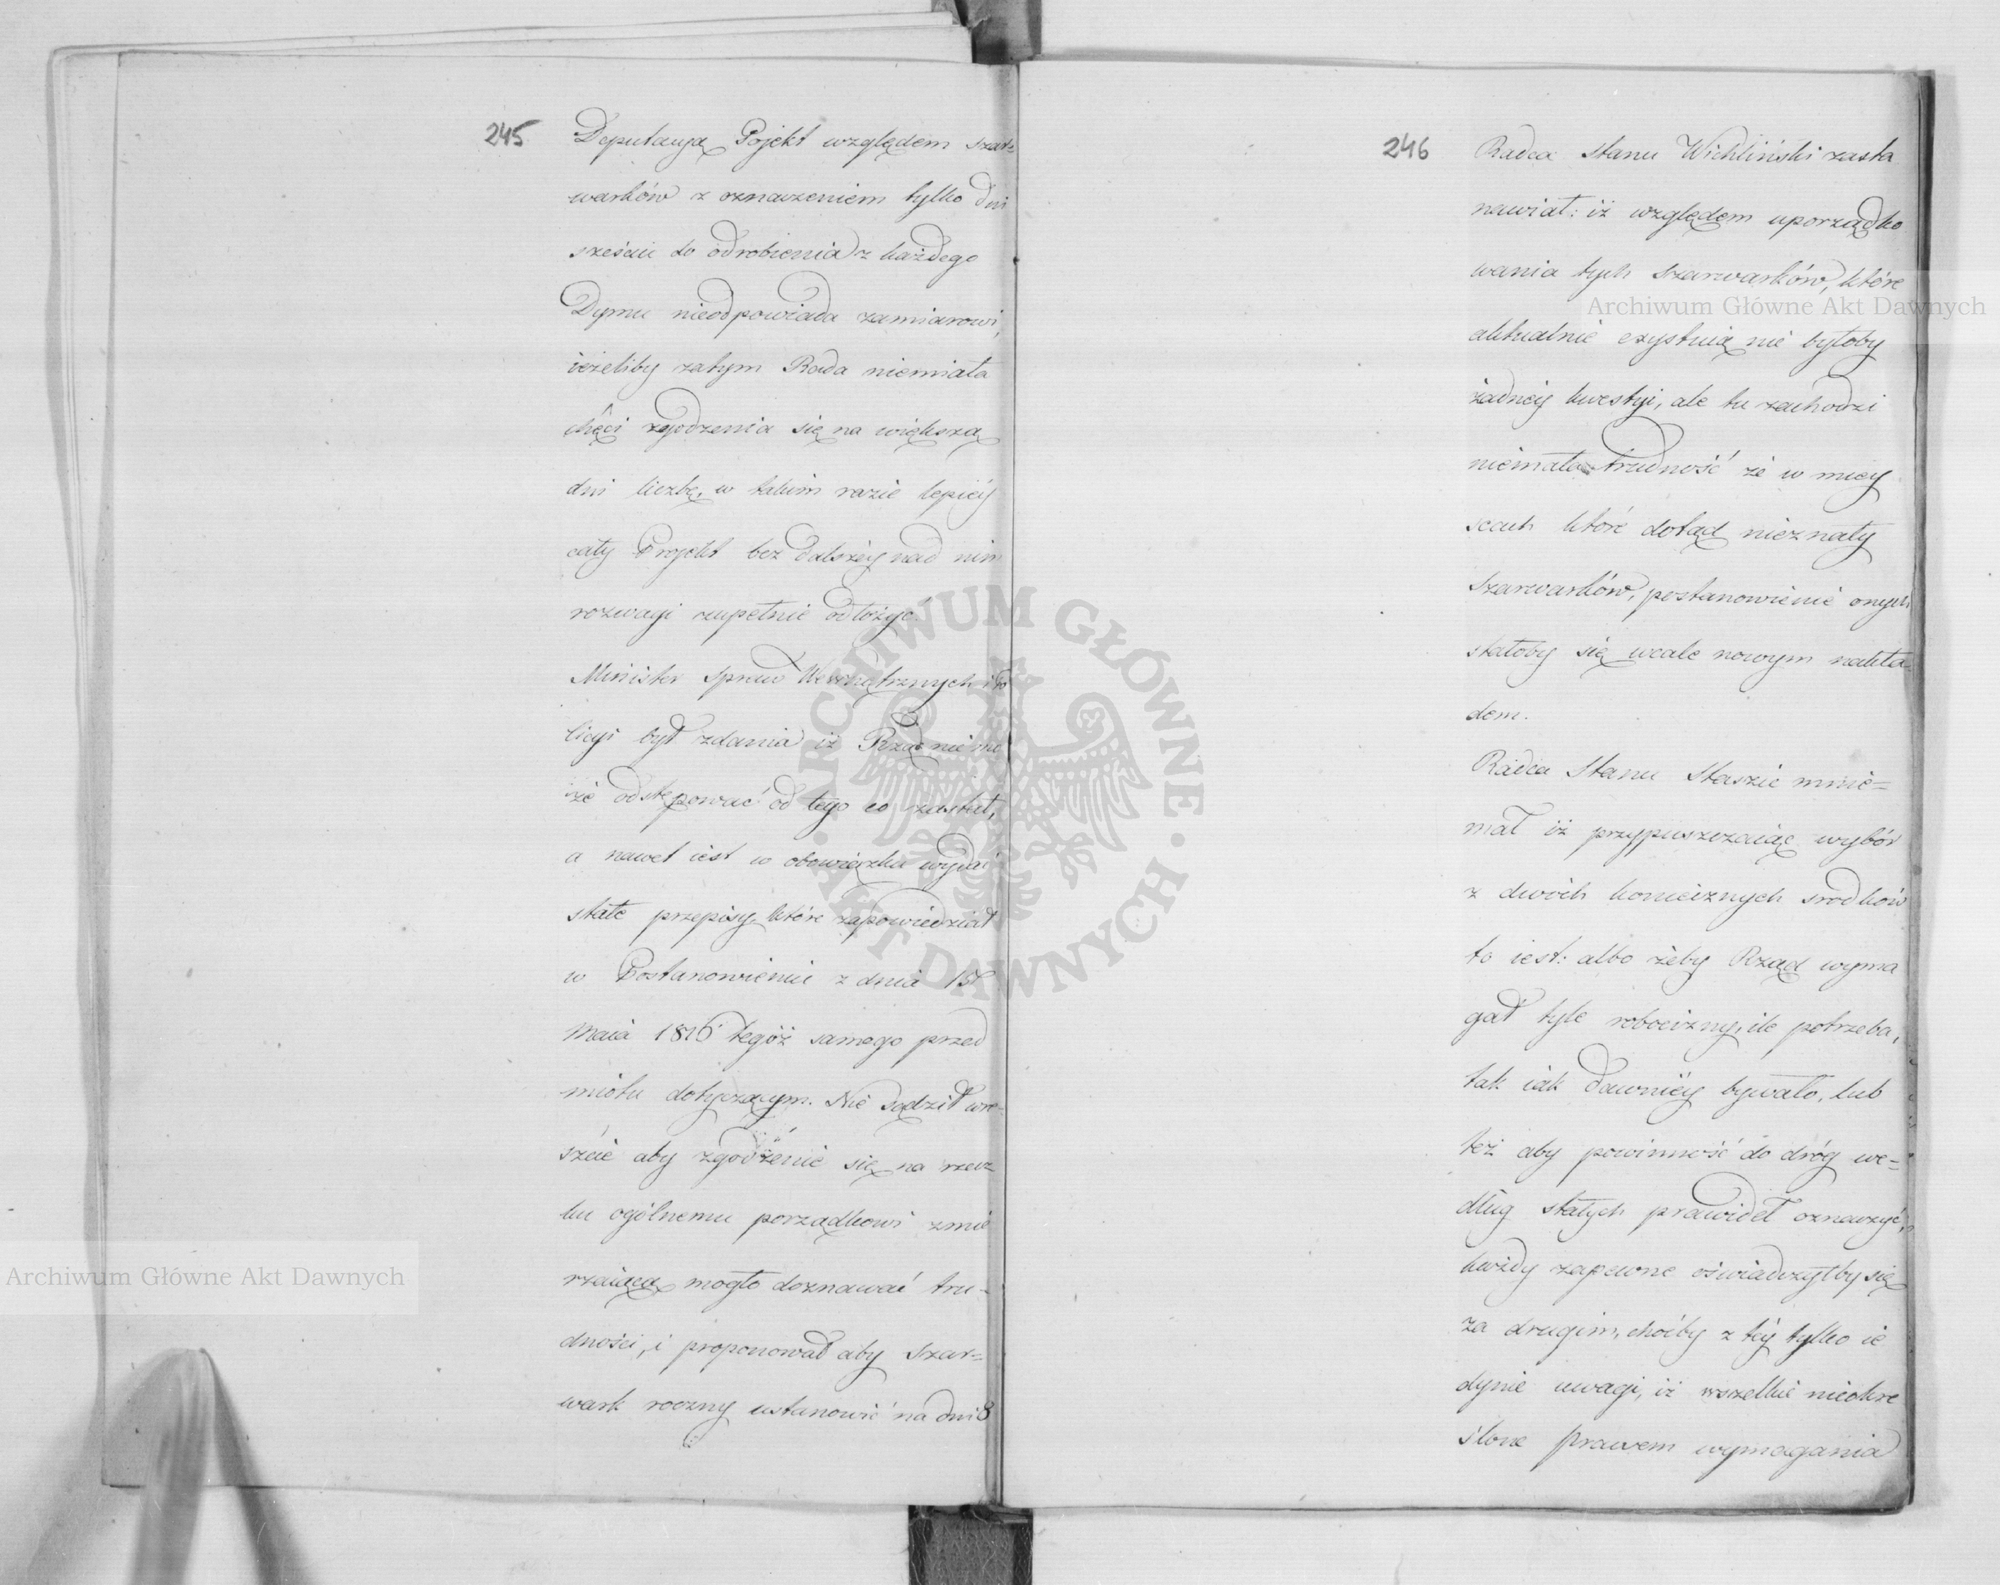 245
Deputacyą Pojekt względem szar=
warków z oznaczeniem tylko dni
sześciu do odrobienia z każdego
Dymu nieodpowiada zamiarowi,
ieżeliby zatym Rada niemiała
chęci zgodzenia się na większą
dni liczbę, w takim razie lepiéy
cały Projekt bez dalszéy nad nim
rozwagi zupełnie odłożyć.
Minister Spraw Wewnętrznych i Po
licyi był zdania iż Rząd nie mo
że odstępować od tego co zastał,
a nawet iest w obowiązku wydać
stałe przepisy, które zapowiedział
w Postanowieniu z dnia
Maia 1816 tegóż samego przed
miotu dotyczącym. Nie sądził wre-
szcie aby zgodzenie się na rzecz
ku ogólnemu porządkowi zmie
rzaiącą mogło doznawać tru-
dności, i proponował aby Szar=
wark roczny ustanowić na dni 8
246
Radca Stanu Wichliński zasta
nawiał: iż względem uporządko
wania tych Szarwarków, które
aktualnie exystuią nie byłoby
żadnéy kwestyi, ale tu zachodzi
niemała trudność że w miey
scach które dotąd nieznały
Szarwarków, postanowienie onych
stałoby się wcale nowym nakła-
dem.
Radca Stanu Staszic mnie=
mał iż przypuszczaiąc wybór
z dwóch koniecznych srodków
to iest: albo żeby Rząd wyma
gał tyle robocizny, ile potrzeba,
tak iak dawniéy bywało, lub
też aby powinność do dróg we=
dług stałych prawideł oznaczyć,
każdy zapewne oświadczyłby się
za drugim, choćby z téy tylko ie
dynie uwagi, iż wszelkie nieokre
ślone prawem wymagania
Archiwum Główne Akt Dawnych
Archiwum Główne Akt Dawnych
ARCHIWUM GŁÓWNE · AKT DAWNYCH ·